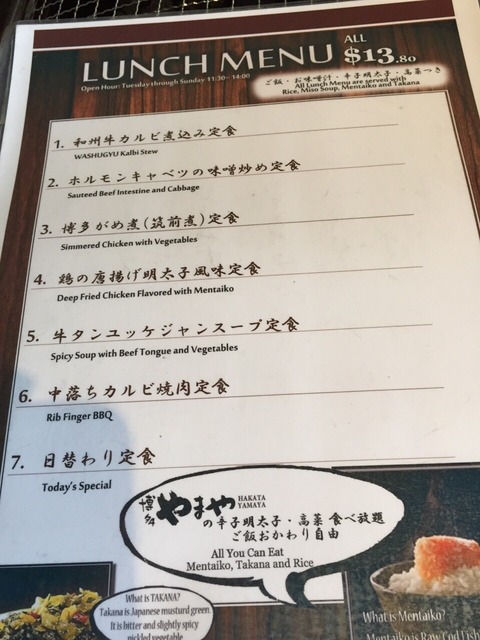 LUNCH MENU ALL $13.80
Open Hour: Tuesday through Sunday 11:30~14:00
ご飯・お味噌汁・辛子明太子・高菜つき
All Lunch Menu are served with
Rice, Miso Soup, Mentaiko and Takana
1. 和州牛カルビ煮込み定食
WASHUGYU Kalbi Stew
2. ホルモンキャベツの味噌炒め定食
Sauteed Beef Intestine and Cabbage
3. 博多がめ煮(筑前煮)定食
Simmered Chicken with Vegetables
4. 鶏の唐揚げ明太子風味定食
Deep Fried Chicken Flavored with Mentaiko
5. 牛タンユッケジャンスープ定食
Spicy Soup with Beef Tongue and Vegetables
6. 中落ちカルビ焼肉定食
Rib Finger BBQ
7. 日替わり定食
Today's Special
博多 やまや HAKATA YAMAYA
の辛子明太子・高菜 食べ放題
ご飯おかわり自由
All You Can Eat
Mentaiko, Takana and Rice
What is TAKANA?
Takana is Japanese mustard green.
It is bitter and slightly
pickled vegetable
What is Mentaiko?
Mentaiko is Raw Cod Fish